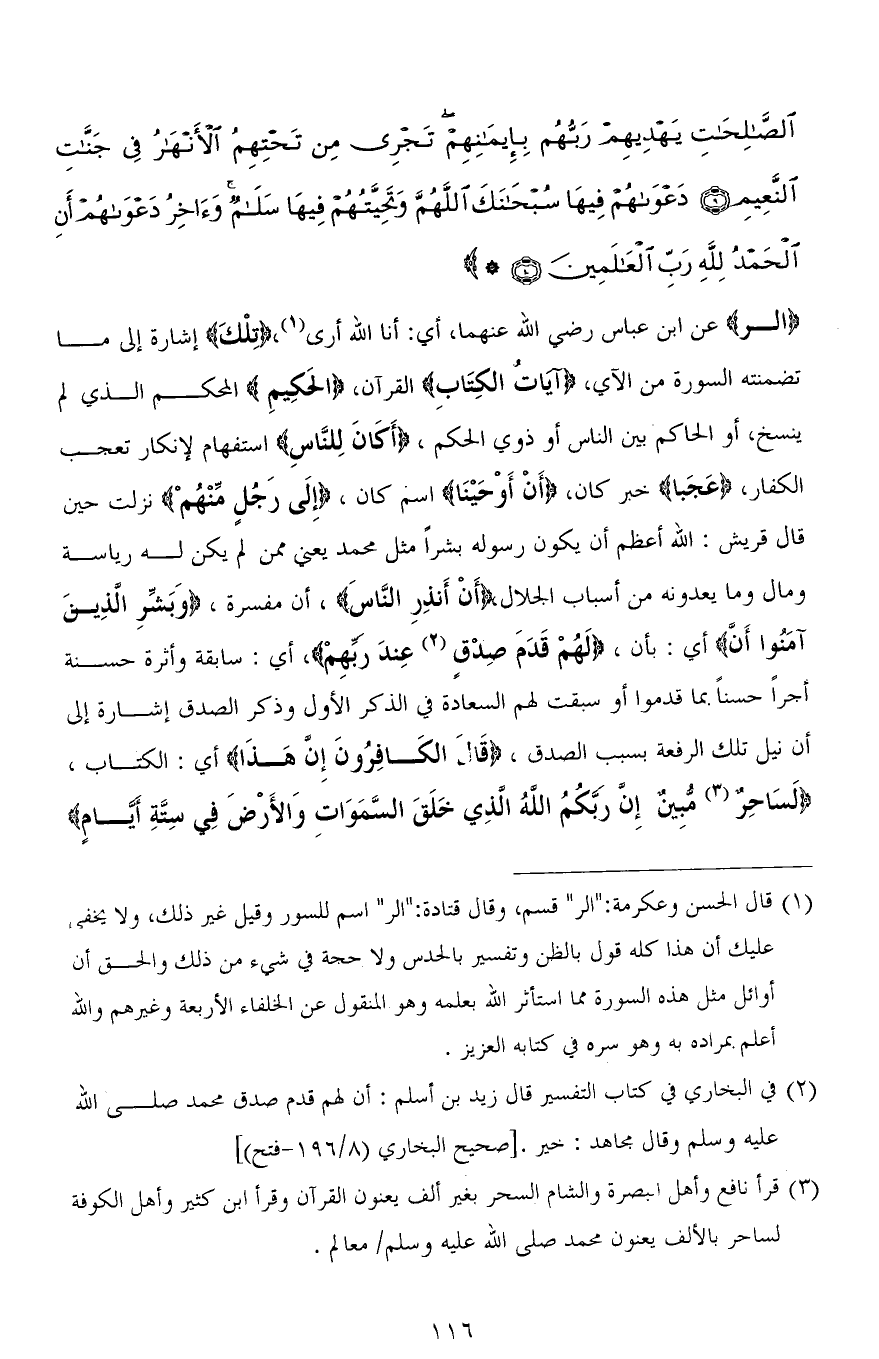 ٱلصَّـٰلِحَـٰتِ يَهْدِيهِمْ رَبُّهُم بِإِيمَـٰنِهِمْۖ تَجْرِى مِن تَحْتِهِمُ ٱلْأَنْهَـٰرُ فِى جَنَّـٰتِ
ٱلنَّعِيمِ ۝٩ دَعْوَىٰهُمْ فِيهَا سُبْحَـٰنَكَ ٱللَّهُمَّ وَتَحِيَّتُهُمْ فِيهَا سَلَـٰمٌۚ وَءَاخِرُ دَعْوَىٰهُمْ أَنِ
ٱلْحَمْدُ لِلَّهِ رَبِّ ٱلْعَـٰلَمِينَ ۝١٠ * ﴾
﴿الــر﴾ عن ابن عباس رضي الله عنهما، أي: أنا الله أرى(١)،﴿تِلْكَ﴾ إشارة إلى مـــا
تضمنته السورة من الآي، ﴿آيَاتُ الكِتَابِ﴾ القرآن، ﴿الحَكِيمِ ﴾ المحكــم الــذي لم
ينسخ، أو الحاكم بين الناس أو ذوي الحكم ، ﴿أَكَانَ لِلنَّاسِ﴾ استفهام لإنكار تعجــب
الكفار، ﴿عَجَبا﴾ خبر كان، ﴿أَنْ أَوْحَيْنَا﴾ اسم كان ، ﴿إِلَى رَجُلٍ مِّنْهُمْ﴾ نزلت حين
قال قريش : الله أعظم أن يكون رسوله بشراً مثل محمد يعني ممن لم يكن لــه رياســة
ومال وما يعدونه من أسباب الجلال،﴿أَنْ أَنذِرِ النَّاسَ﴾ ، أن مفسرة ، ﴿وَبَشِّرِ الَّذِيــنَ
آمَنُوا أَنَّ﴾ أي : بأن ، ﴿لَهُمْ قَدَمَ صِدْقٍ (٢) عِندَ رَبِّهِمْ﴾، أي : سابقة وأثرة حســنة
أجراً حسناً بما قدموا أو سبقت لهم السعادة في الذكر الأول وذكر الصدق إشــارة إلى
أن نيل تلك الرفعة بسبب الصدق ، ﴿قَالَ الكَــافِرُونَ إِنَّ هَــذَا﴾ أي : الكتــاب ،
﴿لَسَاحِرٌ (٣) مُّبِينٌ إِنَّ رَبَّكُمُ اللَّهُ الَّذِي خَلَقَ السَّمَوَاتِ وَالأَرْضَ فِي سِتَّةِ أَيَّــامٍ﴾
(١) قال الحسن وعكرمة:"الر" قسم، وقال قتادة:"الر" اسم للسور وقيل غير ذلك، ولا يخفى
عليك أن هذا كله قول بالظن وتفسير بالحدس ولا حجة في شيء من ذلك والحــق أن
أوائل مثل هذه السورة مما استأثر الله بعلمه وهو المنقول عن الخلفاء الأربعة وغيرهم والله
أعلم بمراده به وهو سره في كتابه العزيز .
(٢) في البخاري في كتاب التفسير قال زيد بن أسلم : أن لهم قدم صدق محمد صلــى الله
عليه وسلم وقال مجاهد : خير .[صحيح البخاري (١٩٦/٨-فتح)]
(٣) قرأ نافع وأهل البصرة والشام السحر بغير ألف يعنون القرآن وقرأ ابن كثير وأهل الكوفة
لساحر بالألف يعنون محمد صلى الله عليه وسلم/ معالم .
١١٦